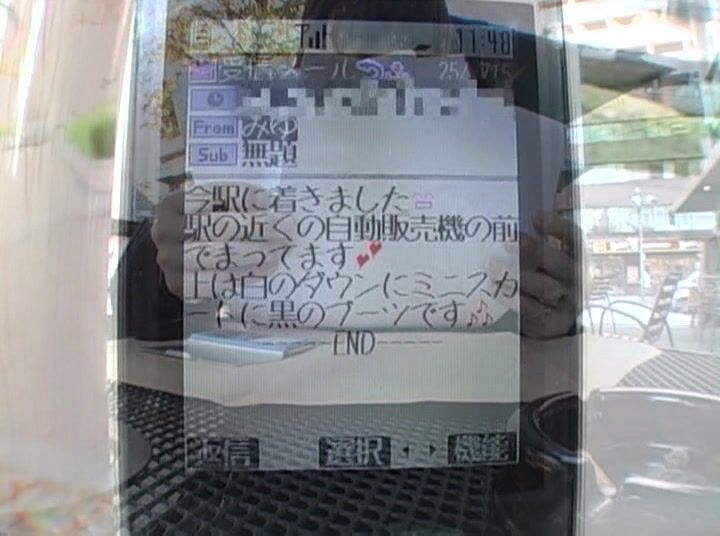 11:48
受信メール 25/
From みゆ
Sub 無題
今駅に着きました
駅の近くの自動販売機の前
でまってます
上は白のダウンにミニスカ
ートに黒のブーツです
------END-----
返信 選択 機能